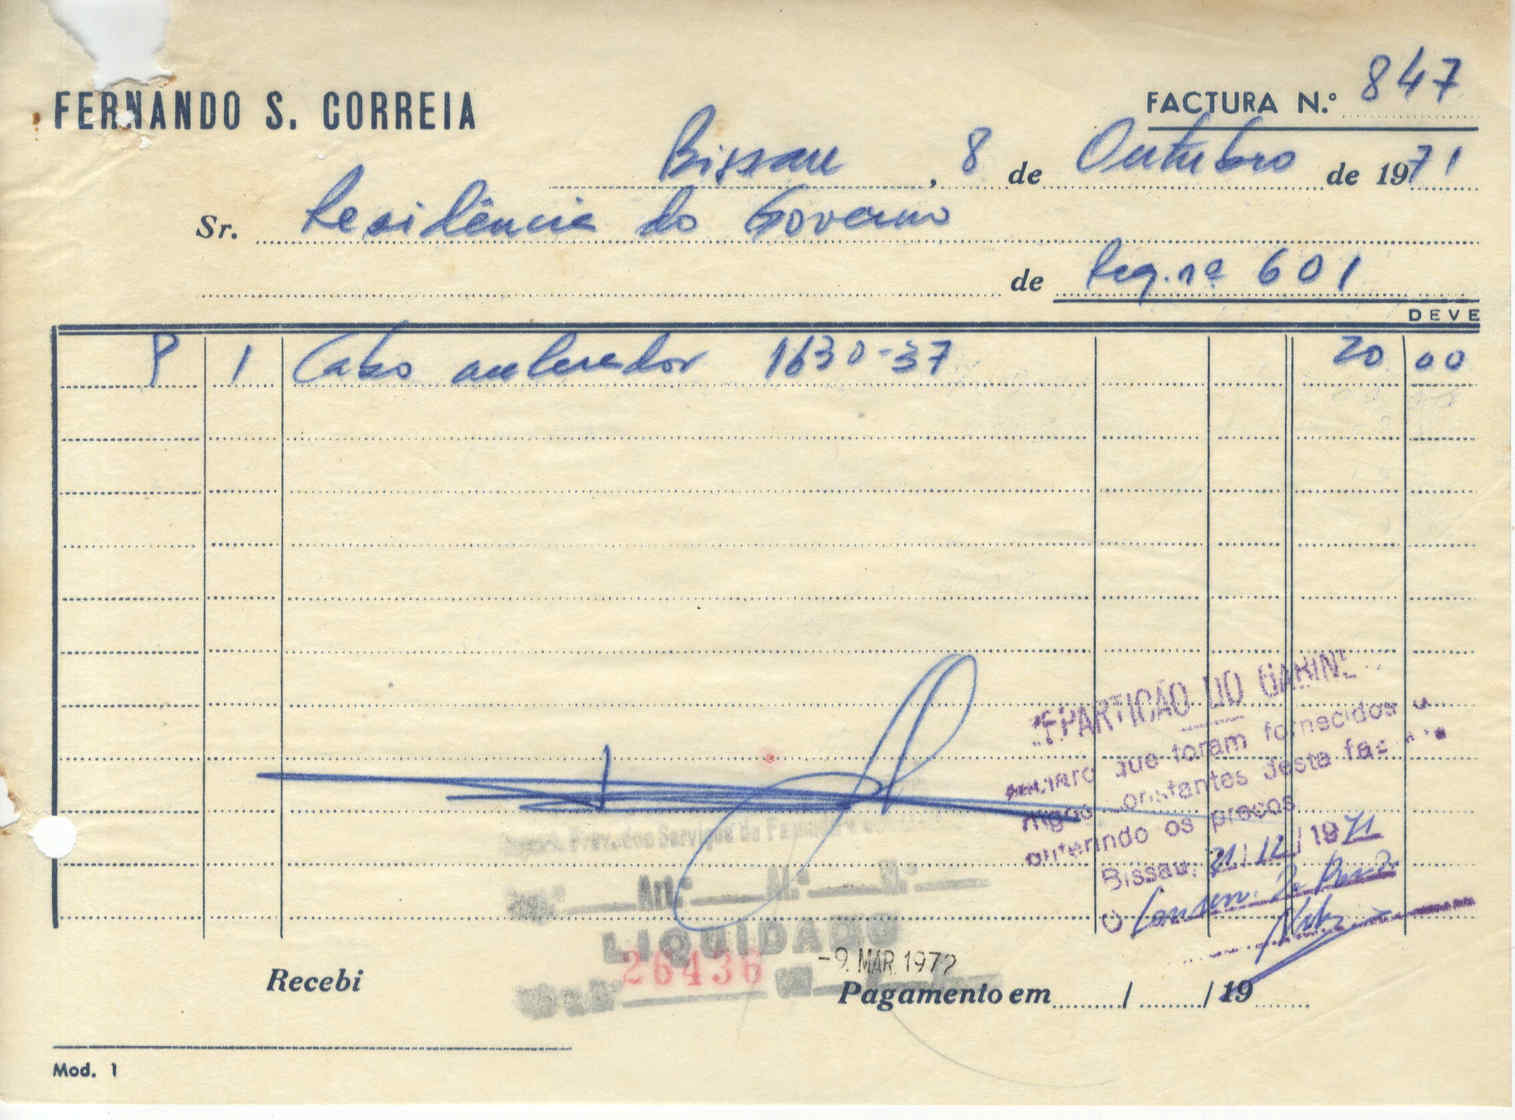 FERNANDO S. CORREIA
FACTURA N.º 847
Bissau, 8 de Outubro de 1971
Sr. Residência do Governo
de Req. nº 601
DEVE
P 1 Cabo acelerador 1630-37 20 00
EPARTIÇÃO DO GABINE
que foram fornecidos
constantes desta fac
os preços
Bissau, 21/12/1971
O
Art.º
LIQUIDADO
26436
-9. MAR. 1972
Recebi
Pagamento em / / 19
Mod. 1